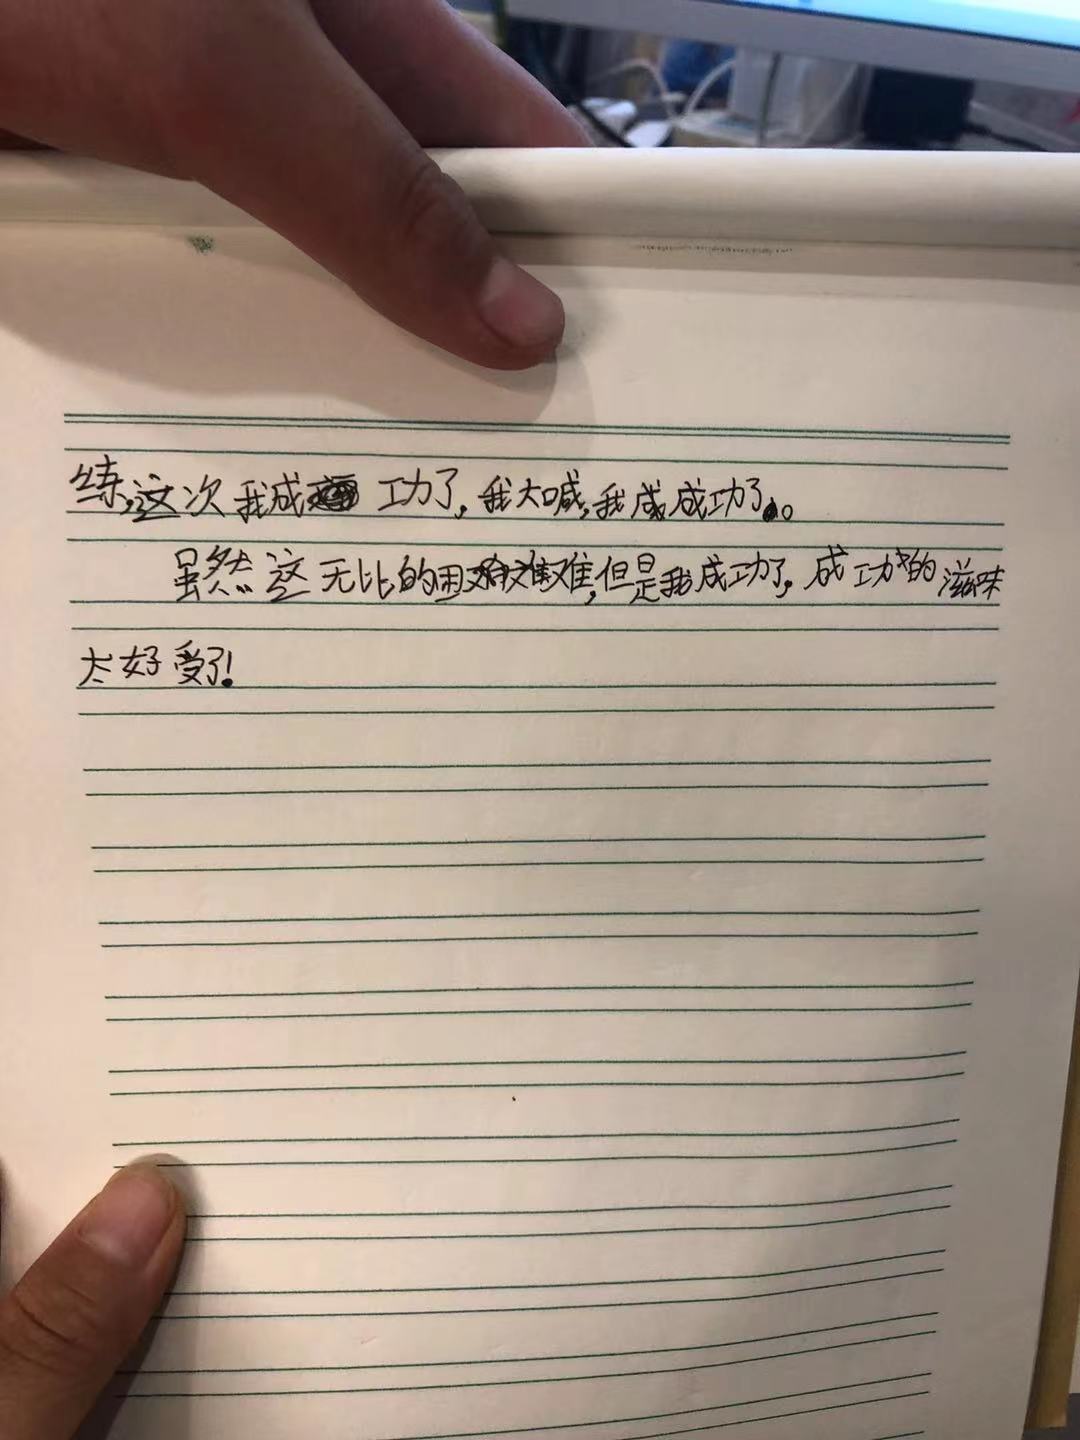 练，这次我成功了，我大喊，我成成功了。
虽然这无比的困难，但是我成功了，成功的滋味
太好受了！